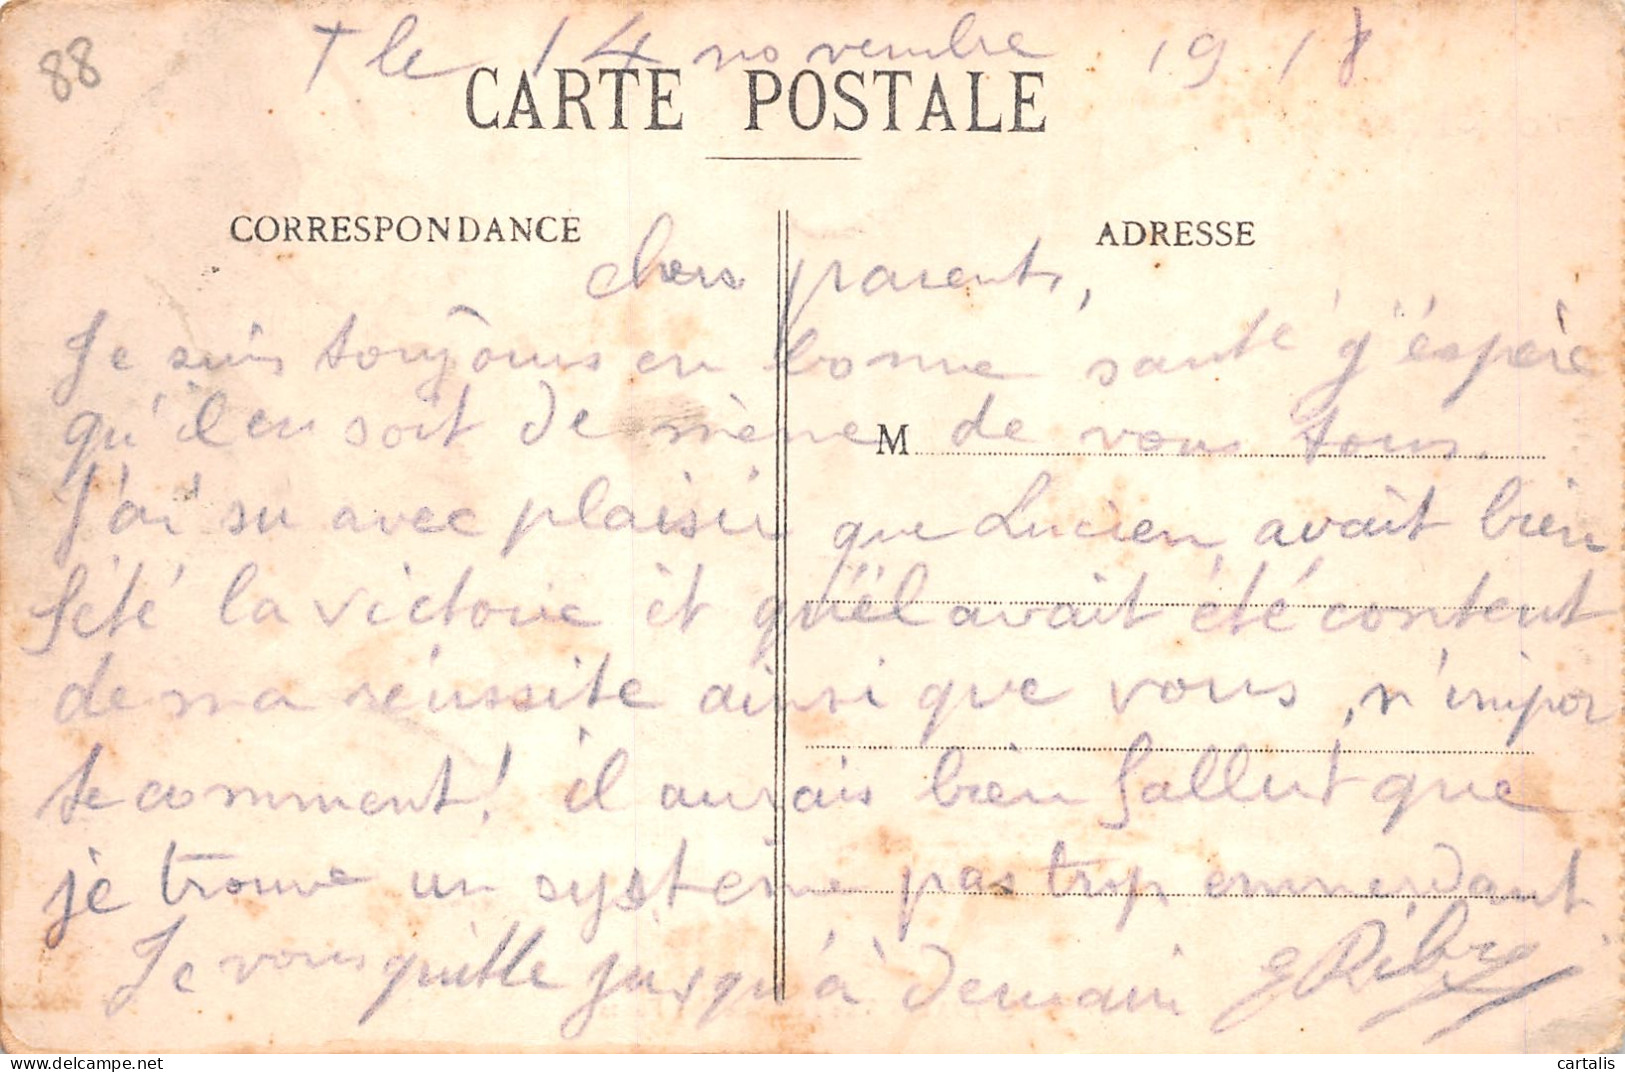 88
+ le 14 novembre 1918
CARTE POSTALE
CORRESPONDANCE
ADRESSE
chers parents,
Je suis toujours en bonne santé j'éspère
qu'il en soit de mème de vous tous.
M
J'ai su avec plaisir que Lucien avait bien
fété la victoire et qu'il avait été content
de ma réussite ainsi que vous, n'impor
te comment! il aurais bien fallut que
je trouve un système pas trop emmerdant
Je vous quitte jusqu'à demain
cartalis
delcampe.net